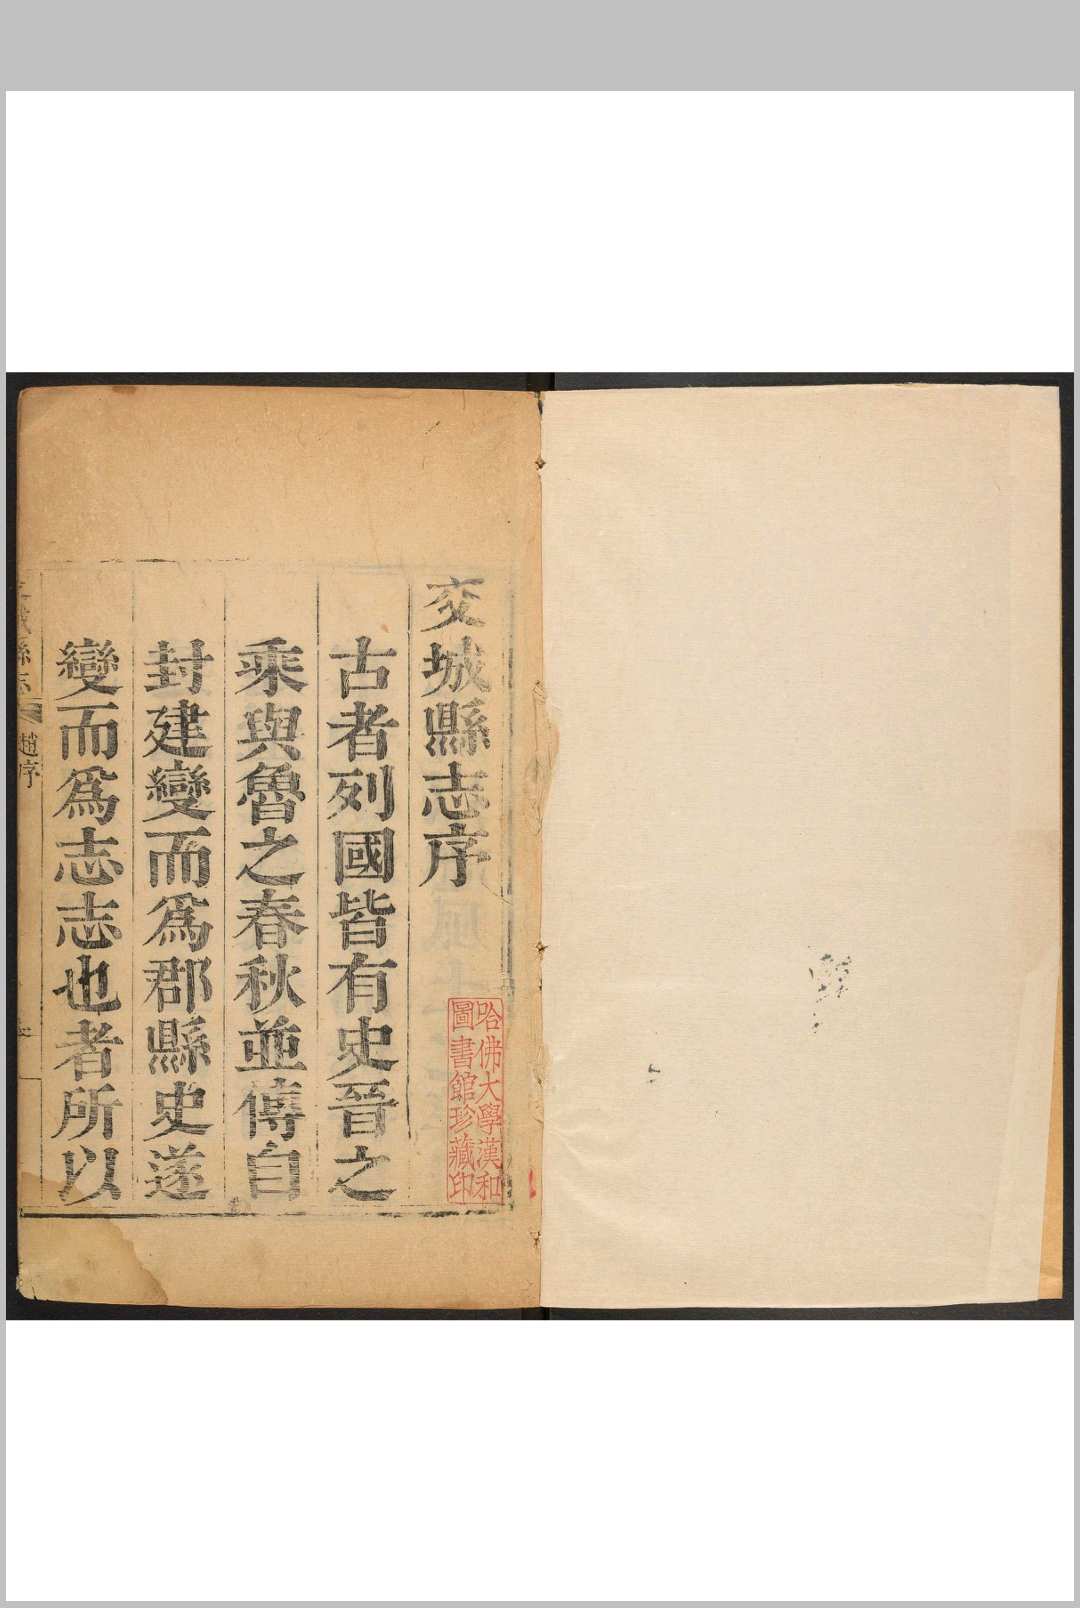 交城縣志序
古者列國皆有史晉之
乘與魯之春秋並傳自
封建變而爲郡縣史遂
變而爲志志也者所以
趙序
哈佛大學漢和
圖書館珍藏印